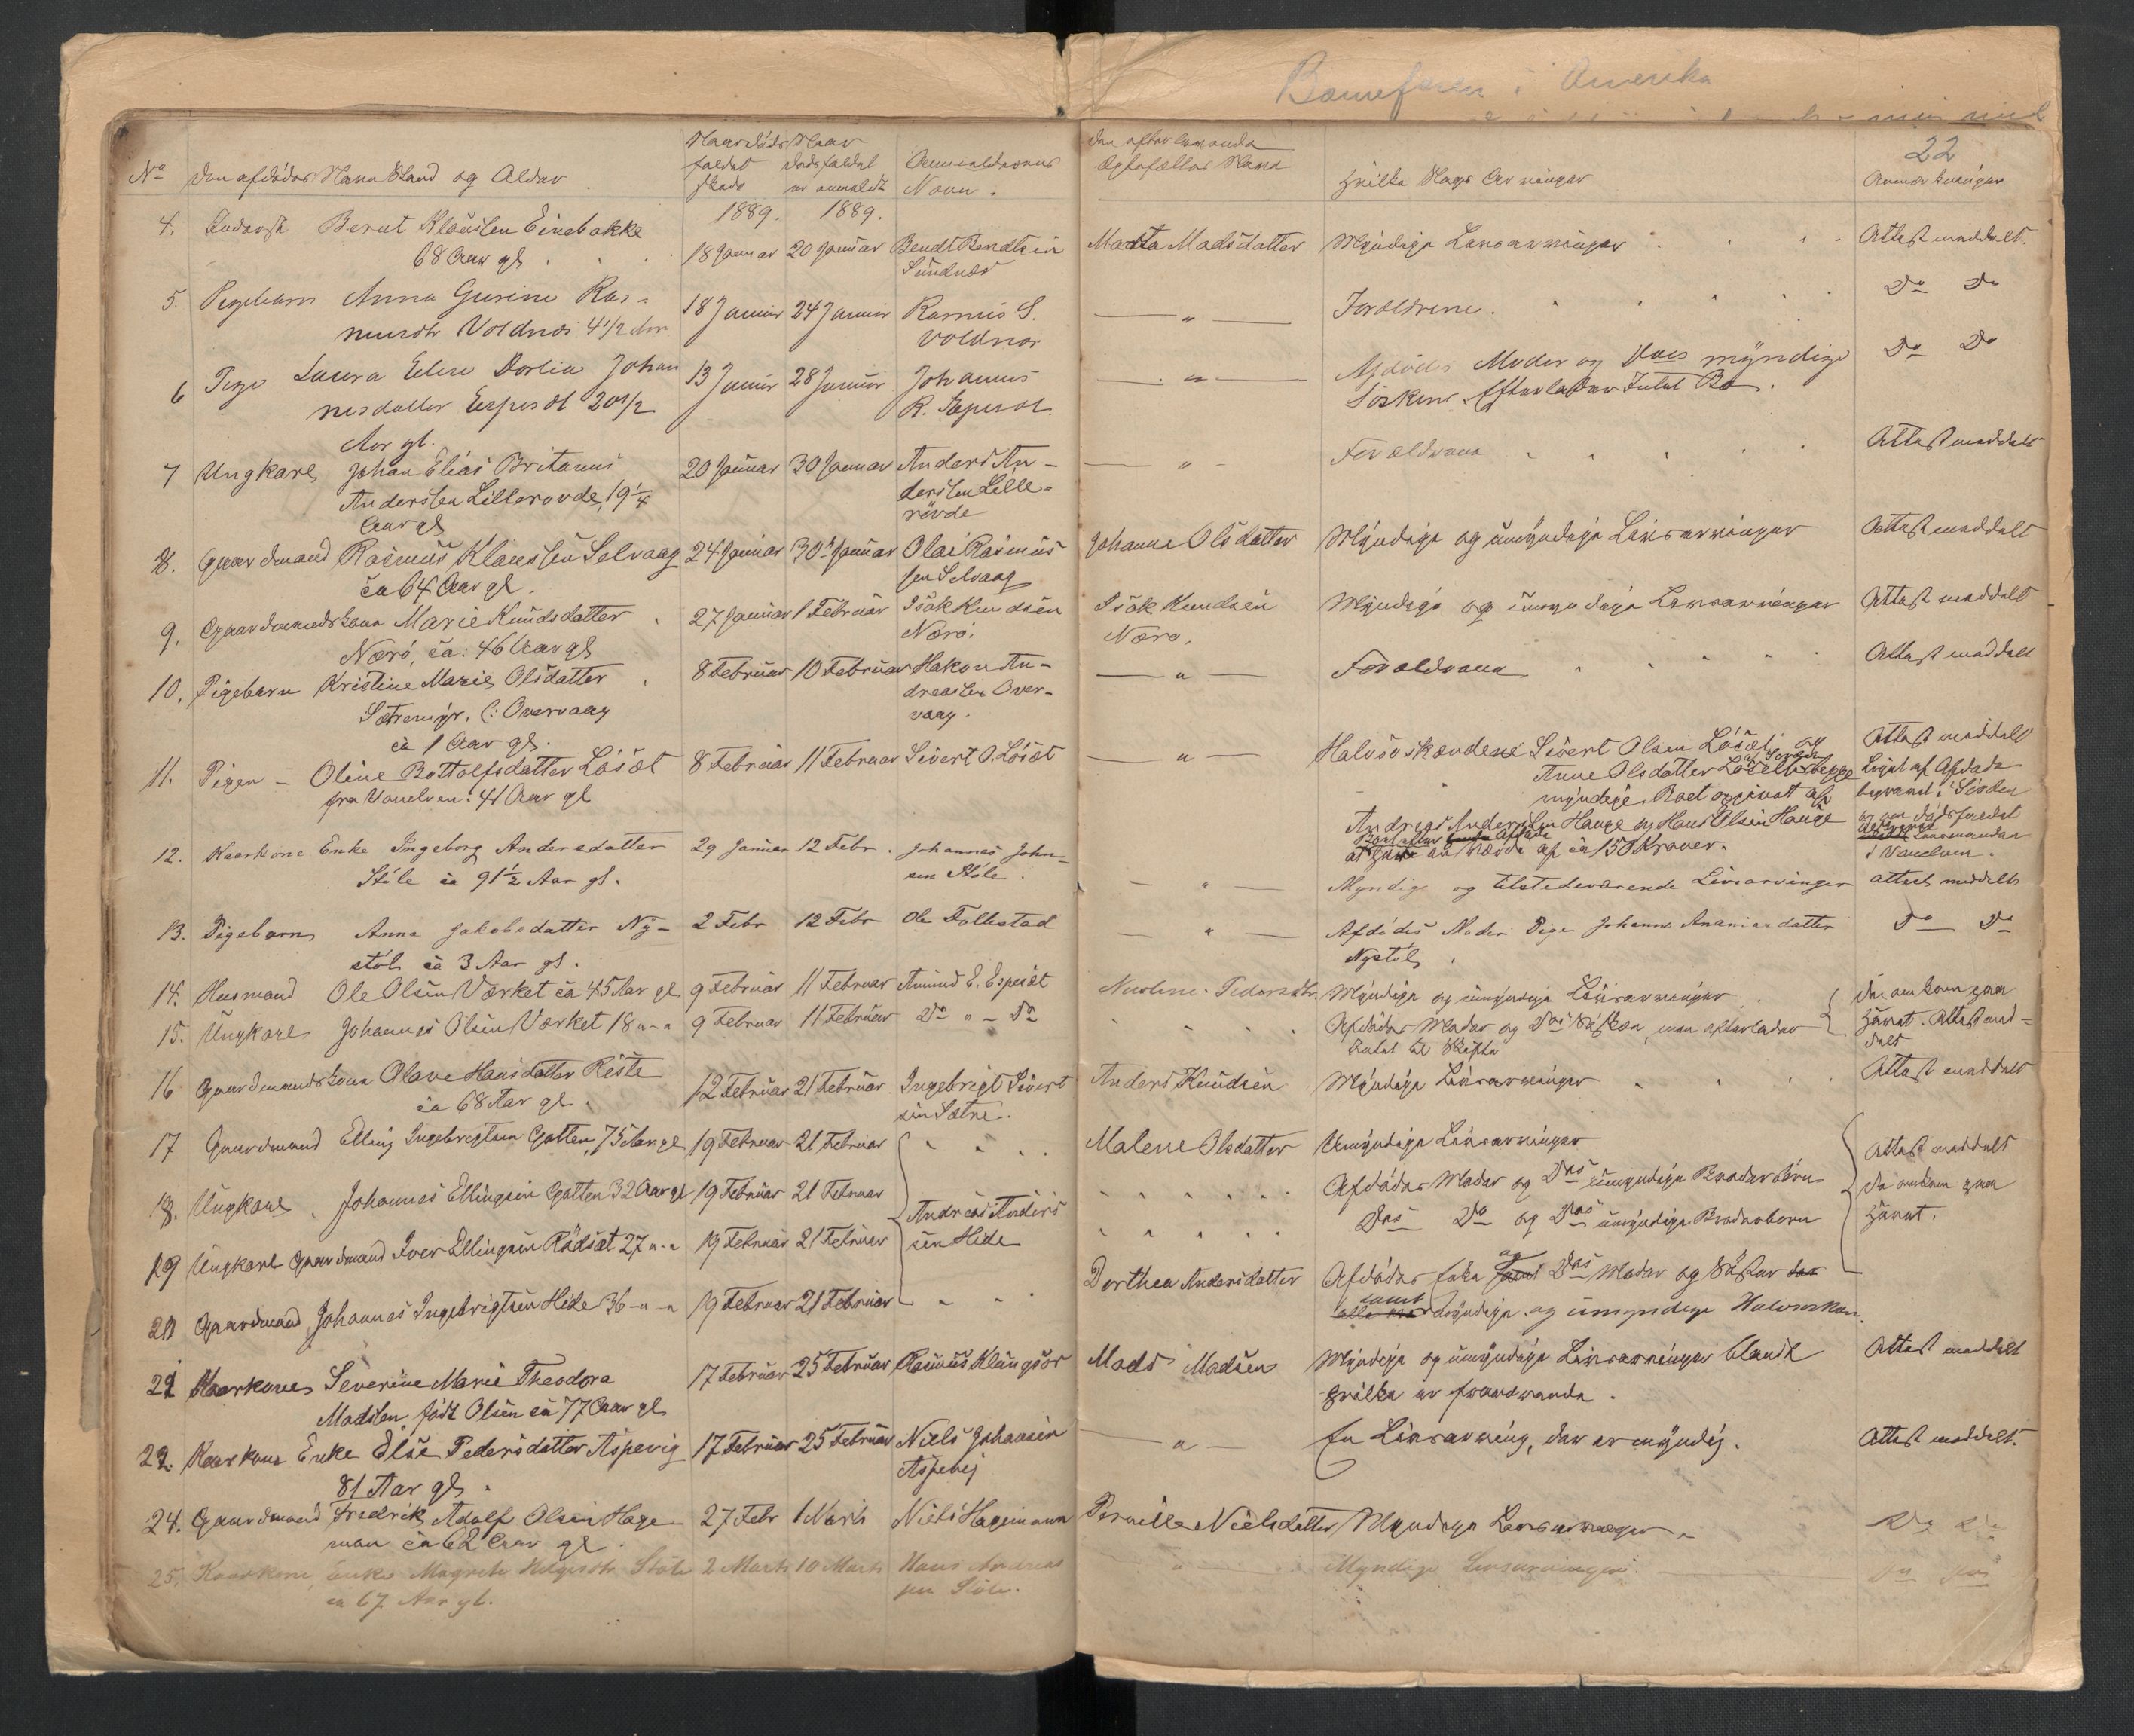 Barnefaren i Amerika
22
No Den afdödes Navn Stand og Alder. Naar Dödsfaldet skede Naar Dödsfaldet er anmeldt Anmelderens Navn. Den efterlevende Ægtefælles Navn Hvilke Slags Arvinger Anmærkninger
1889. 1889.
4. Inderst Bernt Klausen Einebakke 18 Januar 20 Januar Bendt Bendtsen Marta Madsdatter Myndige Livsarvinger Attest meddelt.
68 Aar gl Sundnæs
5. Pigebarn Anna Gurine Ras- 18 Januar 24 Januar Rasmus S. — " — Forældrene. Do Do
musdtr Voldnæs 4 1/2 Aar Voldnæs
6 Pige Laura Eline Dortea Johan 13 Januar 28 Januar Johannes — " — Afdödes Moder og Do's myndige Do Do
nesdatter Espesæt 20 1/2 R. Espesæt Söskene. Efterlader Intet Bo.
Aar gl.
7 Ungkarl Johan Elias Britanus 20 Januar 30 Januar Anders An- — " — Forældrene Attest meddelt
Andersen Lillerovde, 19 1/4 dersen Lille-
Aar gl rövde
8. Gaardmand Rasmus Klausen Selvaag 24 Januar 30 Januar Olai Rasmus Johanne Olsdatter Myndige og umyndige Livsarvinger Attest meddelt
ca 64 Aar gl. sen Selvaag
9. Gaardmandskone Marie Knudsdatter 27 Januar 1 Februar Isak Knudsen Isak Knudsen Myndige og umyndige Livsarvinger Attest meddelt
Nærö, ca: 46 Aar gl Nærö. Nærö.
10. Pigebarn Kristine Marie Olsdatter 8 Februar 10 Februar Hakon An- — " — Forældrene Attest meddelt
Sætremyr. (: Overvaag dreasen Over-
ca 1 Aar gl. vaag.
11. Pigen – Oline Bottolfsdatter Lösæt 8 Februar 11 Februar Sivert O. Lösæt — " — Halvsöskendene Sivert Olsen Lösæt og Attest meddelt
fra Vanelven: 41 Aar gl Anne Olsdatter Lösæt begge Liget af Afdöde
myndige. Boet opgivet af begravet i Sörden
Andreas Andersen Hauge og Hans Olsen Hauge og om Dödsfaldet
at have en Værdi af ca 150 Kroner. Lensmanden
i Vanelven.
12. Kaarkone Enke Ingeborg Andersdatter 29 Januar 12 Febr. Johannes John- — " — Myndige og tilstedeværende Livsarvinger attest meddelt
Stöle ca 91 1/2 Aar gl. sen Stöle.
13. Pigebarn Anna Jakobsdatter Ny- 2 Febr 12 Febr Ole Follestad — " — Afdödes Moder Pige Johanne Ananiasdatter Do Do
stöl ca 3 Aar gl. Nystöl
14. Husmand Ole Olsen Værket ca 45 Aar gl 9 Februar 11 Februar Amund E. Espesæt Nicoline Pedersdtr. Myndige og umyndige Livsarvinger De omkom paa
15. Ungkarl Johannes Olsen Værket 18 " - " 9 Februar 11 Februar Do " - Do Afdödes Moder og Do's Söskken, men efterlader Havet. Attest med-
Intet til Skifte delt
16 Gaardmandskone Olave Hansdatter Riste 12 Februar 21 Februar Ingebrigt Sivert Anders Knudsen Myndige Livsarvinger Attest meddelt
ca 68 Aar gl. sen Sætre.
17 Gaardmand Elling Ingebrigtsen Gotten, 75 Aar gl 19 Februar 21 Februar Malene Olsdatter Umyndige Livsarvinger Attest meddelt
18. Ungkarl Johannes Ellingsen Gotten 32 Aar gl 19 Februar 21 Februar Andreas Anders Afdödes Moder og Do's umyndige Broderbörn De omkom paa
19 Ungkarl Gaardmand Iver Ellingsen Rödsæt 27 " - " 19 Februar 21 Februar sen Hide Do's Do og Do's umyndige Broderbörn Havet.
20 Gaardmand Johannes Ingebrigtsen Hide 36 - " - " 19 Februar 21 Februar Dorthea Andersdatter Afdödes og Do's Moder og Söster
samt myndige og umyndige Halvsöskene.
21 Kaarkone Severine Marie Theodora 17 Februar 25 Februar Rasmus Klungsör Mads Madsen Myndige og umyndige Livsarvinger blandt Attest meddelt
Madsen, född Olsen ca 77 Aar gl hvilke er fraværende.
22. Kaarkone Enke Else Pedersdatter Aspevig 17 Februar 25 Februar Niels Johansen — " — En Livsarving, der er myndig. Attest meddelt.
81 Aar gl. Aspevej
24. Gaardmand Fredrik Adolf Olsen Hage 27 Febr 1 Marts Niels Hagemann Pernille Nielsdatter Myndige Livsarvinger Do Do
man ca 62 Aar gl.
25. Kaarkone, Enke Magrete Helgesdtr Stöle 2 Marts 10 Marts Hans Andreas — " — Myndige Livsarvinger
ca 67 Aar gl. sen Stöle.